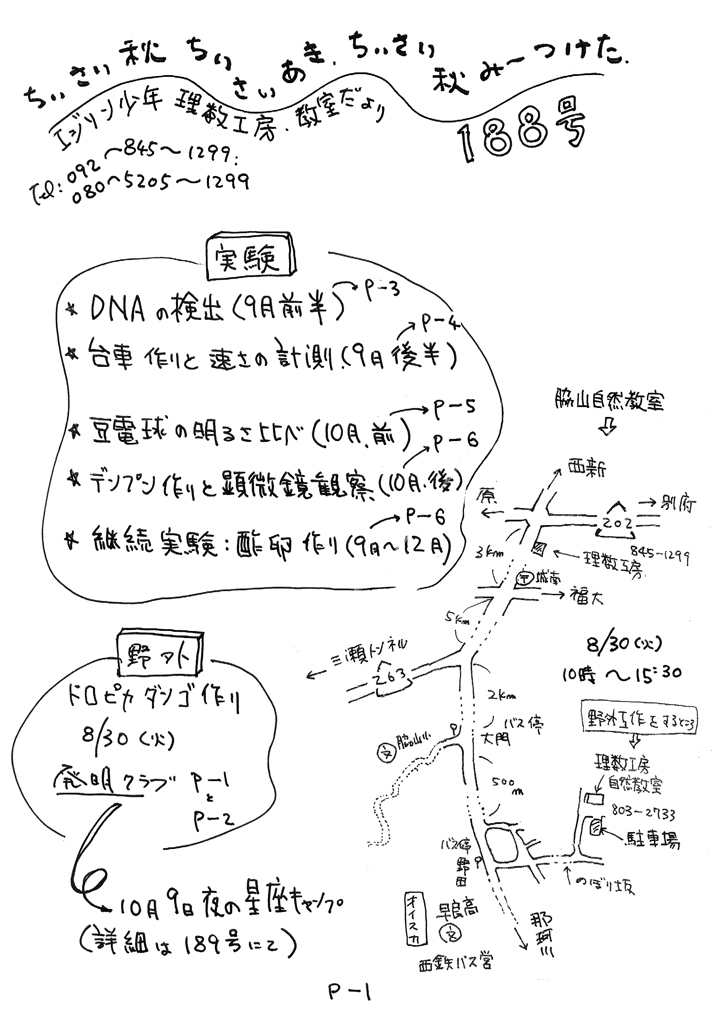 ちぃさい秋ちぃさいあき、ちぃさい秋み〜つけた。
エジソン少年理数工房、教室だより
188号
Tel: 092〜845〜1299:
080〜5205〜1299
実験
* DNAの検出(9月前半) → P-3
* 台車作りと速さの計測(9月後半) → P-4
* 豆電球の明るさ比べ(10月、前) → P-5
* デンプン作りと顕微鏡観察(10月、後) → P-6
* 継続実験:酢卵作り(9月〜12月) → P-6
野外
ドロピカダンゴ作り
8/30(火)
発明クラブ P-1と
P-2
10月9日夜の星座キャンプ
(詳細は189号にて)
脇山自然教室
西新
原
別府
202
3km
理数工房
845-1299
〒城南
福大
5km
三瀬トンネル
263
8/30(火)
10時〜15:30
2km
バス停
大門
文 脇山小
500m
野外工作をするところ
理数工房
自然教室
803-2733
駐車場
バス停
野田
のぼり坂
オイスカ
早良高
文
西鉄バス営
那珂川
P-1